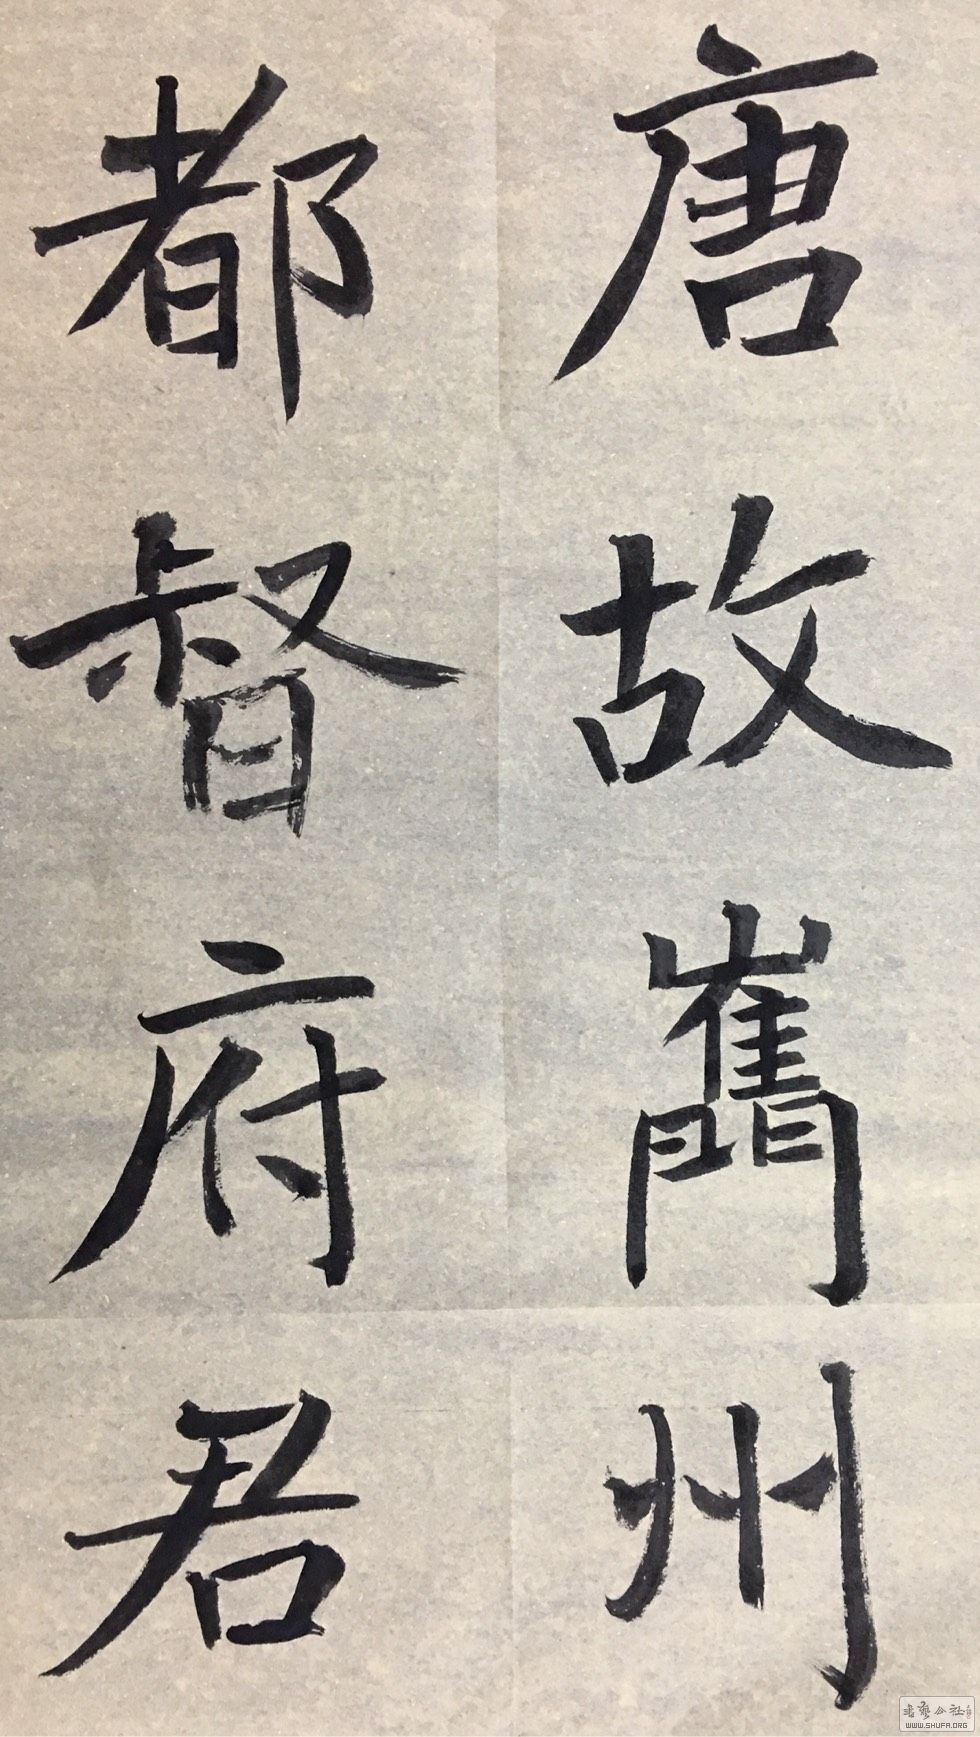 唐故巂州
都督府君
書藝公社
WWW.SHUFA.ORG